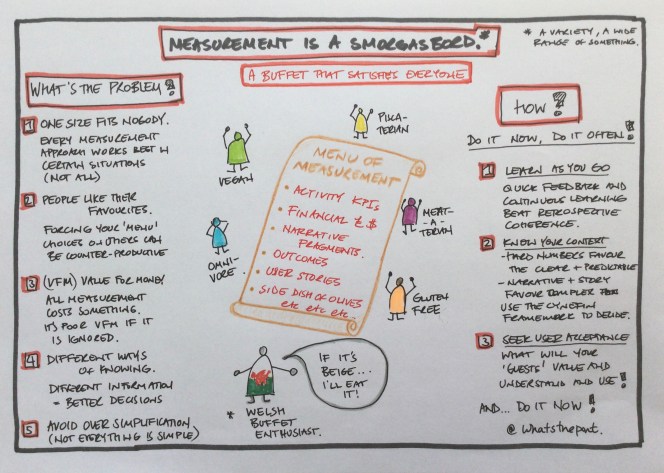 MEASUREMENT IS A SMORGASBORD.*
* A VARIETY, A WIDE
RANGE OF SOMETHING.
A BUFFET THAT SATISFIES EVERYONE
WHAT'S THE PROBLEM?
1 ONE SIZE FITS NOBODY.
EVERY MEASUREMENT
APPROACH WORKS BEST IN
CERTAIN SITUATIONS
(NOT ALL)
2 PEOPLE LIKE THEIR
FAVOURITES.
FORCING YOUR 'MENU'
CHOICES ON OTHERS CAN
BE COUNTER-PRODUCTIVE
3 (VFM) VALUE FOR MONEY
ALL MEASUREMENT
COSTS SOMETHING.
IT'S POOR VFM IF IT
IS IGNORED.
4 DIFFERENT WAYS
OF KNOWING.
DIFFERENT INFORMATION
= BETTER DECISIONS
5 AVOID OVER SIMPLIFICATION
(NOT EVERYTHING IS SIMPLE)
VEGAN
PISCA-
TERIAN
OMNI-
VORE.
MEAT-
A-
TERIAN
GLUTEN
FREE
MENU OF
MEASUREMENT
• ACTIVITY KPIs
• FINANCIAL £ $
• NARRATIVE
FRAGMENTS.
• OUTCOMES
• USER STORIES
• SIDE DISH OF OLIVES
etc etc etc..
IF IT'S
BEIGE...
I'LL EAT
IT!
* WELSH
BUFFET
ENTHUSIAST.
HOW?
DO IT NOW, DO IT OFTEN!
1 LEARN AS YOU GO
QUICK FEEDBACK AND
CONTINUOUS LEARNING
BEAT RETROSPECTIVE
COHERENCE.
2 KNOW YOUR CONTEXT
-HARD NUMBERS FAVOUR
THE CLEAR + PREDICTABLE
-NARRATIVE + STORY
FAVOUR
USE THE CYNEFIN
FRAMEWORK TO DECIDE.
3 SEEK USER ACCEPTANCE
WHAT WILL YOUR
'GUESTS' VALUE AND
UNDERSTAND AND USE!
AND... DO IT NOW!
@whatsthepont.